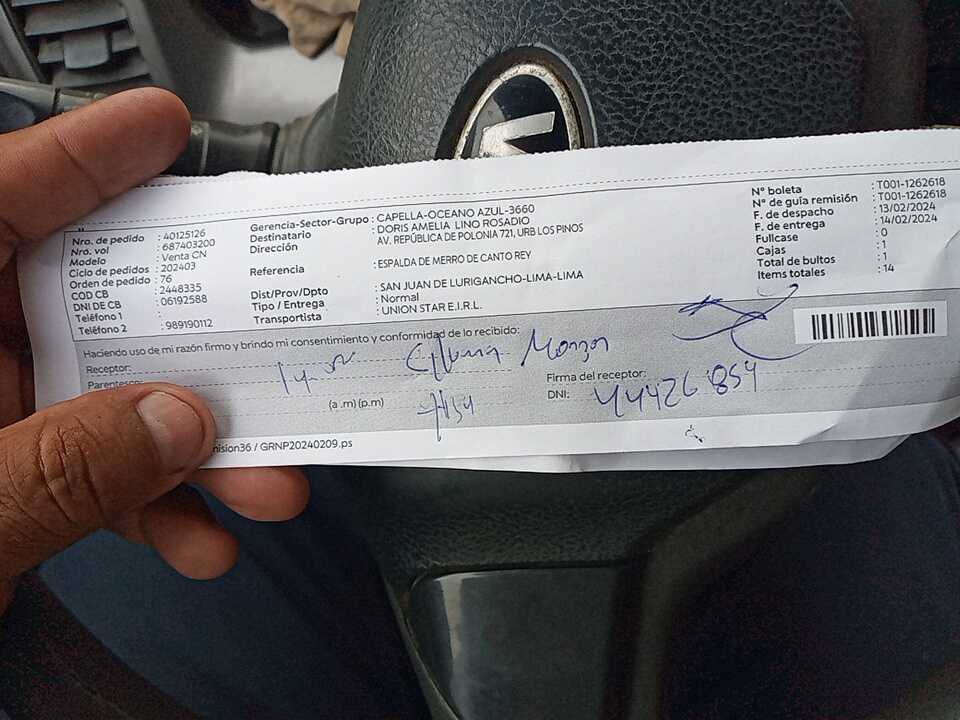 Nro. de pedido : 40125126
Nro. vol : 687403200
Modelo : Venta CN
Ciclo de pedidos : 202403
Orden de pedido : 76
COD CB : 2448335
DNI DE CB : 06192588
Teléfono 1 :
Teléfono 2 : 989190112
Gerencia-Sector-Grupo : CAPELLA-OCEANO AZUL-3660
Destinatario : DORIS AMELIA LINO ROSADIO
Dirección AV. REPÚBLICA DE POLONIA 721, URB LOS PINOS
Referencia : ESPALDA DE MERRO DE CANTO REY
Dist/Prov/Dpto : SAN JUAN DE LURIGANCHO-LIMA-LIMA
Tipo / Entrega : Normal
Transportista : UNION STAR E.I.R.L.
N° boleta : T001-1262618
N° de guía remisión : T001-1262618
F. de despacho : 13/02/2024
F. de entrega : 14/02/2024
Fullcase : 0
Cajas : 1
Total de bultos : 1
Items totales : 14
Haciendo uso de mi razón firmo y brindo mi consentimiento y conformidad de lo recibido:
Receptor:
Parentesco:
(a .m) (p.m)
Firma del receptor:
DNI: 44426854
ision36 / GRNP20240209.ps